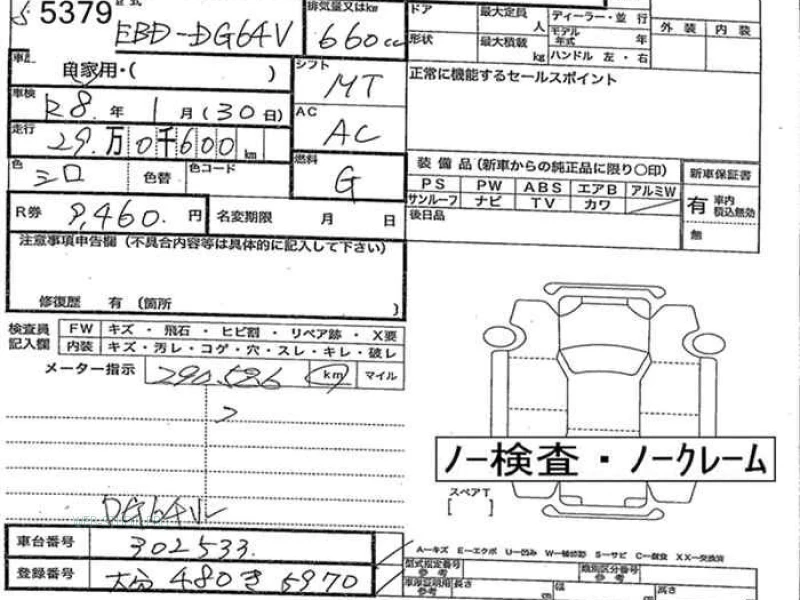 5379
型式
EBD-DG64V
排気量又はkw
660cc
ドア
最大定員
人
形状
最大積載
kg
ディーラー・並 行
モデル年式
年
ハンドル 左・右
外 装
内 装
自家用・( )
シフト
MT
正常に機能するセールスポイント
車検
R8. 年 1 月 (30日)
AC
AC
走行
29.万0千600 km
色
シロ
色替
色コード
燃料
G
装 備 品 (新車からの純正品に限り〇印)
PS PW ABS エアB アルミW
サンルーフ ナビ TV カワ
後日品
新車保証書
有 車内積込無効
無
R券 9,460. 円
名変期限 月 日
注意事項申告欄 (不具合内容等は具体的に記入して下さい)
修復歴 有 (箇所 )
検査員記入欄
FW キズ ・ 飛石 ・ ヒビ割 ・ リペア跡 ・ X要
内装 キズ・汚レ・コゲ・穴・スレ・キレ・破レ
メーター指示
290,596
km
マイル
ノー検査・ノークレーム
スペアT
[ ]
DG64V
車台番号 302533.
登録番号 大分 480 き 5970
A—キズ E—エクボ U—凹み W—補修跡 S—サビ C—腐食 XX—交換済
型式指定番号
参 考
類別区分番号
参 考
車庫証明用
参考
長さ
幅
高さ